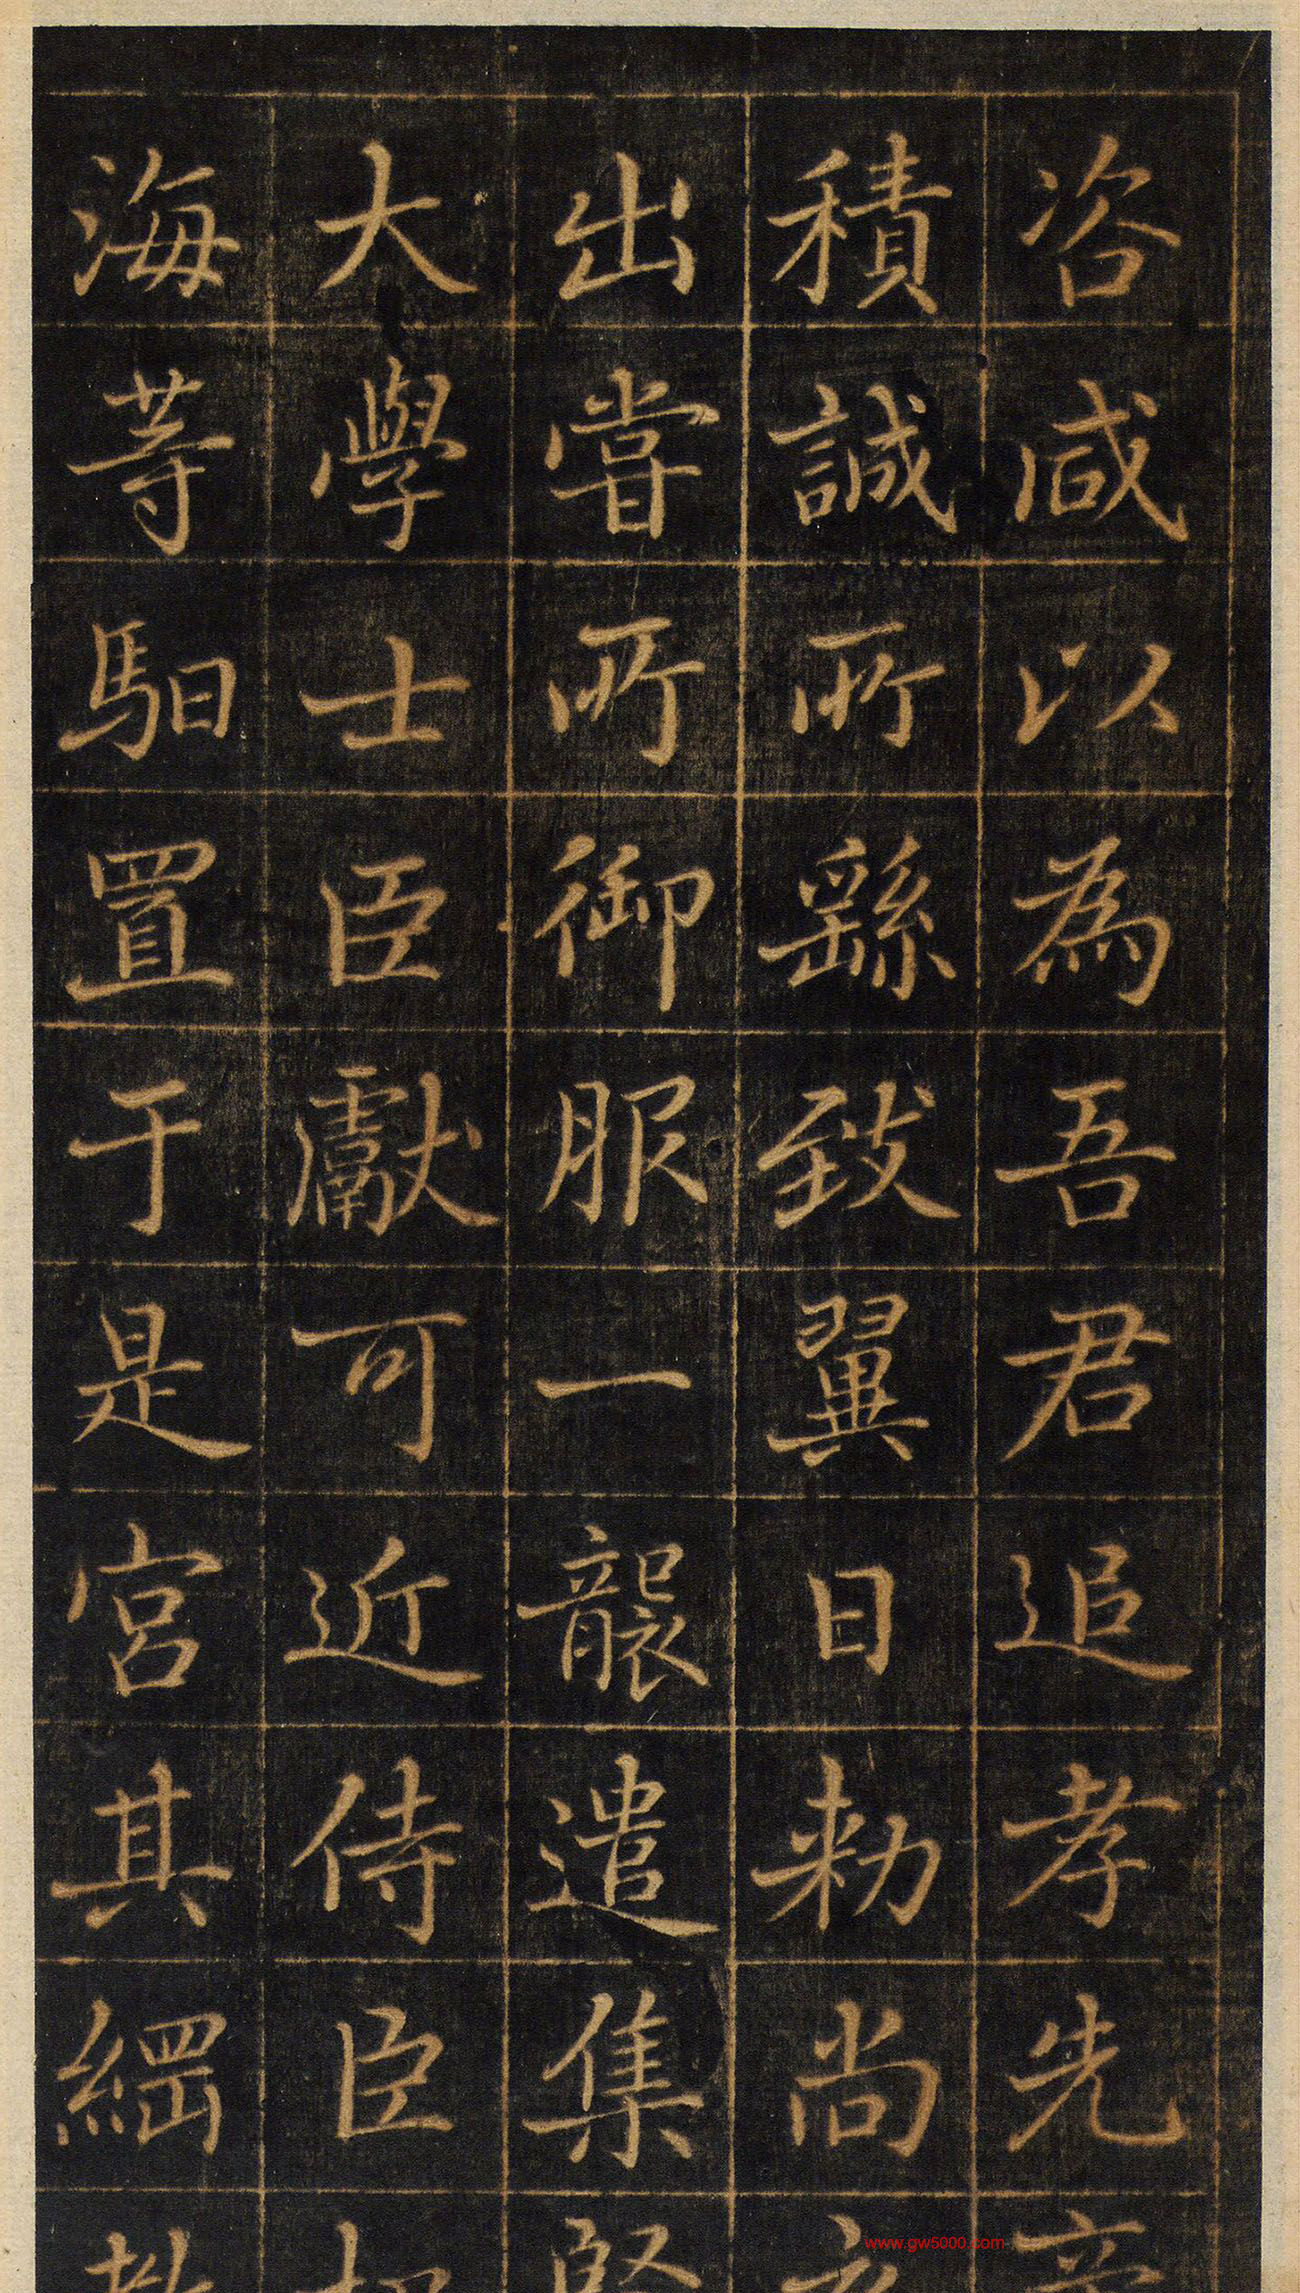 咨咸以為吾君追孝先帝
積誠所繇致翼日勅尚衣
出嘗所御服一襲遣集賢
大學士臣獻可近侍臣
海等馹置于是宮其綱
www.gw5000.com